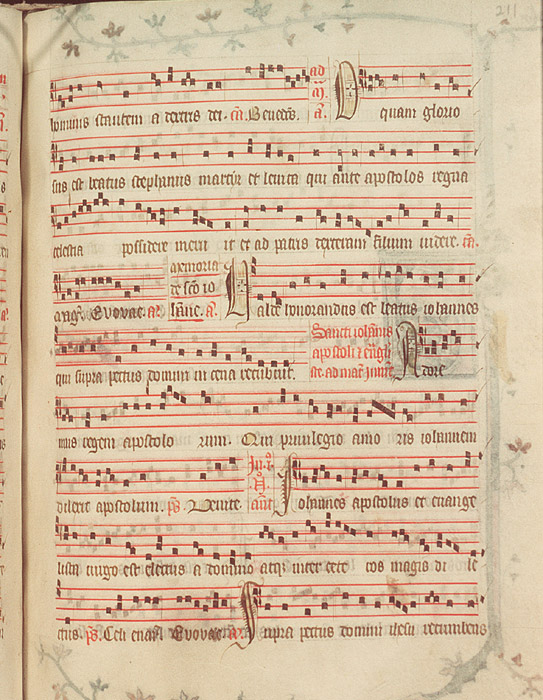 211
hominis stantem a dextris dei. ca. Benedcs. ad a. O quam glorio
sus est beatus stephanus martyr et levita qui ante apostolos regna
celestia possidere meru it et ad patris dexteram filium videre. ca.
Evovae memoria de sco io hane. a. Valde honorandus est beatus iohannes
qui supra pectus domini in cena recubuit. Sancti iohannis apostoli Adore
mus regem apostolo rum. Qui privilegio amo ris iohannem
dilexit apostolum. ps. Venite. Iohannes apostolus et evange
lista virgo est electus a domino atque inter cete ros magis di lec
tus. ps. Celi enar. Evovae. Supra pectus domini ihesu recumbens